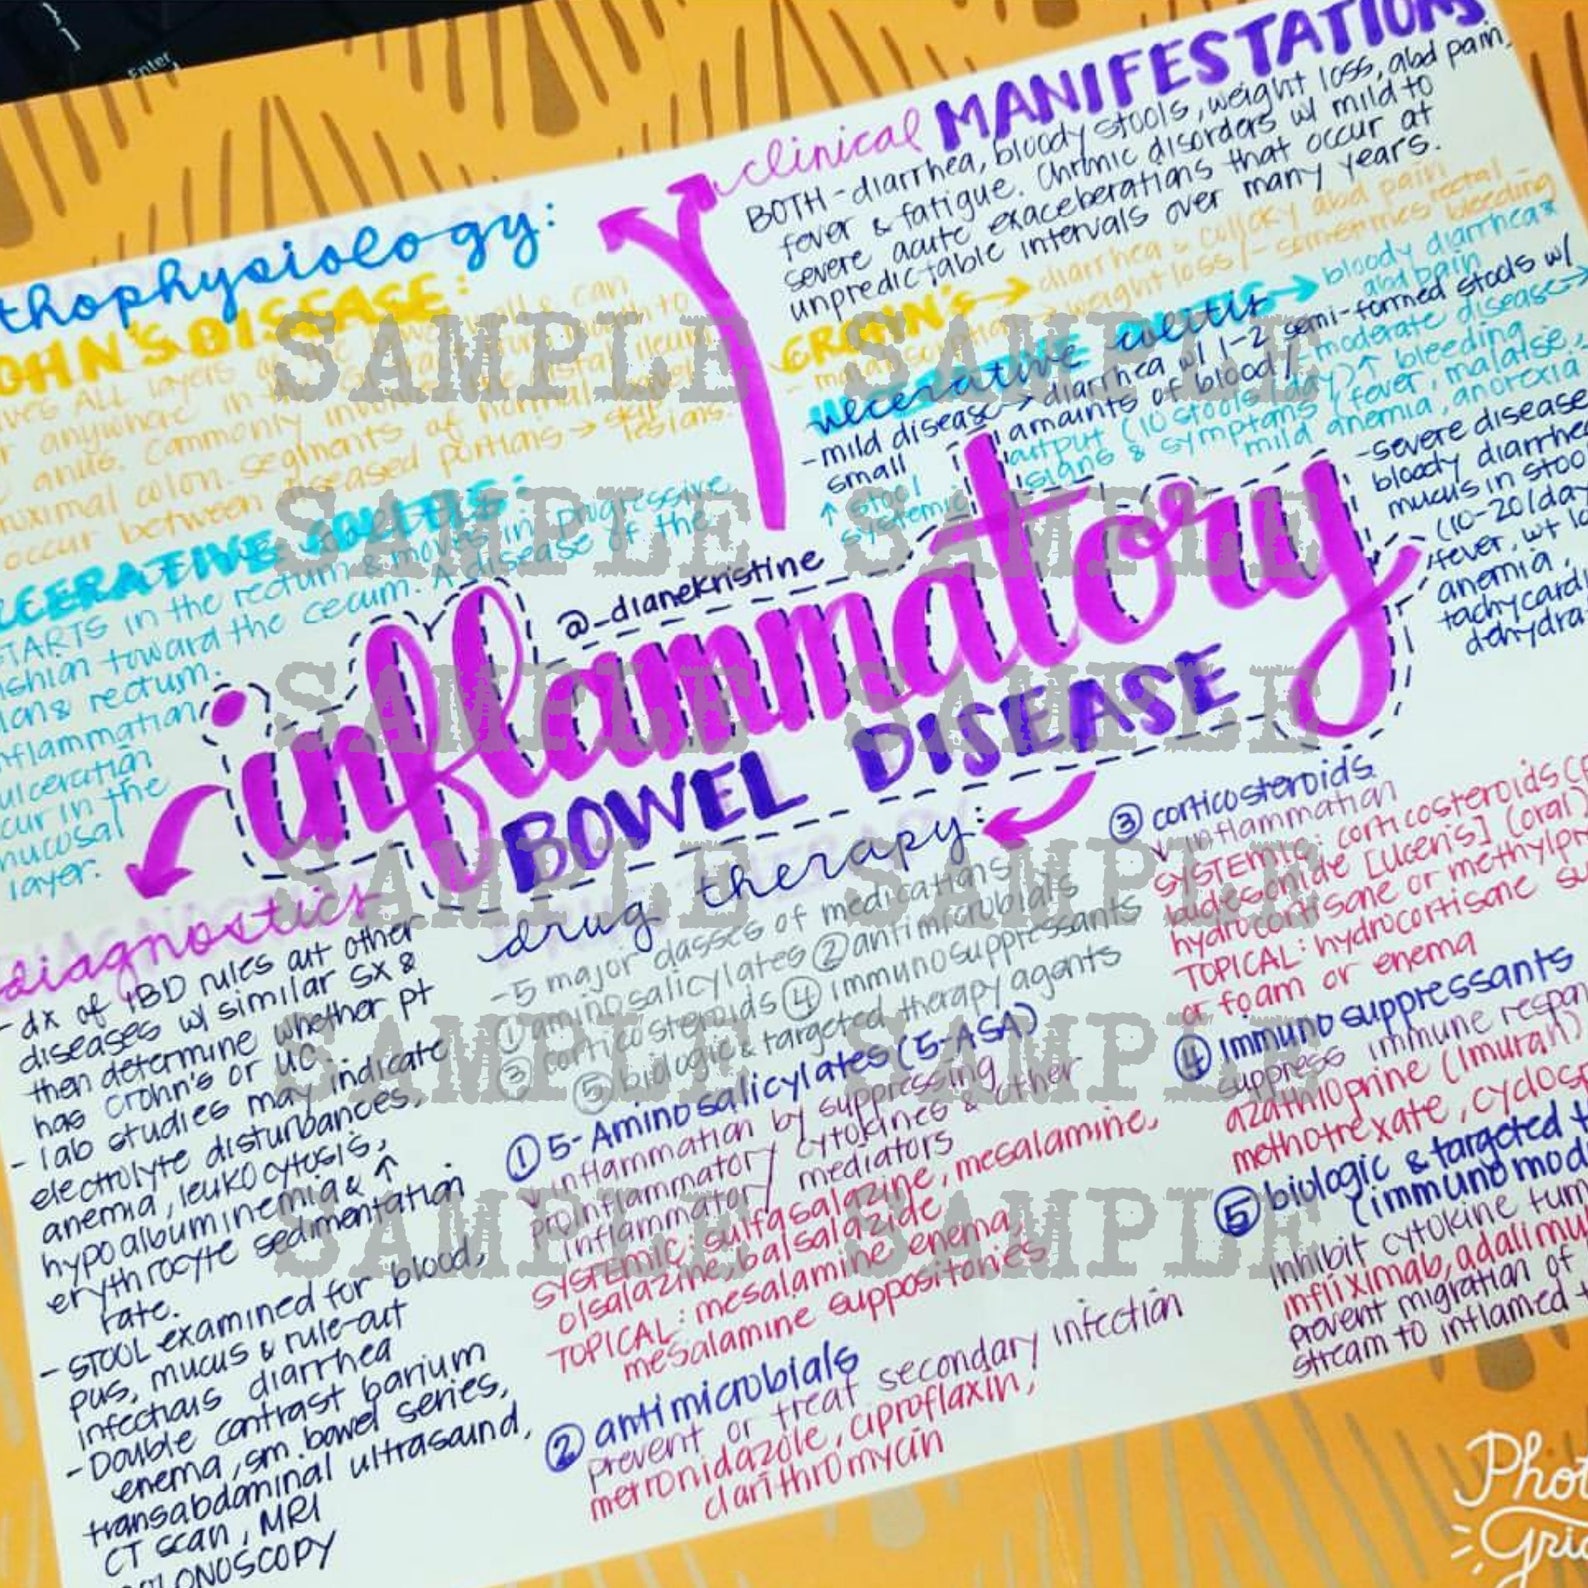 Enter
clinical MANIFESTATIONS
BOTH - diarrhea, bloody stools, weight loss, abd pain,
fever & fatigue. Chronic disorders w/ mild to
severe acute exacerbations that occur at
unpredictable intervals over many years.
CROHN'S → diarrhea & colicky abd pain
- malabsorption → weight loss / - sometimes rectal
bleeding
ulcerative colitis → bloody diarrhea &
abd pain
- mild disease → diarrhea w/ 1-2 semi-formed stools w/
small amounts of blood / - moderate disease →
↑ stool output (10 stools day) ↑ bleeding
systemic signs & symptoms (fever, malaise,
mild anemia, anorexia
- severe disease
bloody diarrhea
mucus in stool
(10-20/day
fever, wt lo
anemia,
tachycardi
dehydra
thophysiology:
OHN'S DISEASE:
ves ALL layers of the bowel wall & can
r anywhere in the GI tract from mouth to
anus. Commonly involves the distal ileum
roximal colon. Segments of normal bowel
occur between diseased portions → skip
lesions.
LCERATIVE COLITIS:
STARTS in the rectum & moves in progressive
shion toward the cecum. A disease of the
lon & rectum.
nflammation
ulceration
cur in the
mucosal
layer.
@_dianekristine
inflammatory
BOWEL DISEASE
diagnostics
- dx of IBD rules out other
diseases w/ similar sx &
then determine whether pt
has Crohn's or UC
- lab studies may indicate
electrolyte disturbances,
anemia, leukocytosis,
hypoalbuminemia & ↑
erythrocyte sedimentation
rate.
- STOOL examined for blood,
pus, mucus & rule-out
infectious diarrhea
- Double contrast barium
enema, sm. bowel series,
transabdominal ultrasound,
CT scan, MRI
COLONOSCOPY
drug therapy:
- 5 major classes of medications
① aminosalicylates ② antimicrobials
③ corticosteroids ④ immunosuppressants
⑤ biologic & targeted therapy agents
① 5-Aminosalicylates (5-ASA)
↓ inflammation by suppressing
proinflammatory cytokines & other
inflammatory mediators
SYSTEMIC: sulfasalazine, mesalamine,
olsalazine, balsalazide
TOPICAL: mesalamine enema,
mesalamine suppositories
② antimicrobials
prevent or treat secondary infection
metronidazole, ciproflaxin,
clarithromycin
③ corticosteroids
↓ inflammation
SYSTEMIC: corticosteroids (p
budesonide [Uceris] (oral)
hydrocortisone or methylpr
TOPICAL: hydrocortisone su
or foam or enema
④ immunosuppressants
suppress immune respon
azathioprine (Imuran)
methotrexate, cyclosp
⑤ biologic & targeted t
(immunomod
inhibit cytokine tum
infliximab, adalimu
prevent migration of
stream to inflamed t
SAMPLE SAMPLE
SAMPLE SAMPLE
SAMPLE SAMPLE
SAMPLE SAMPLE
SAMPLE SAMPLE
SAMPLE SAMPLE
Phot
Gri